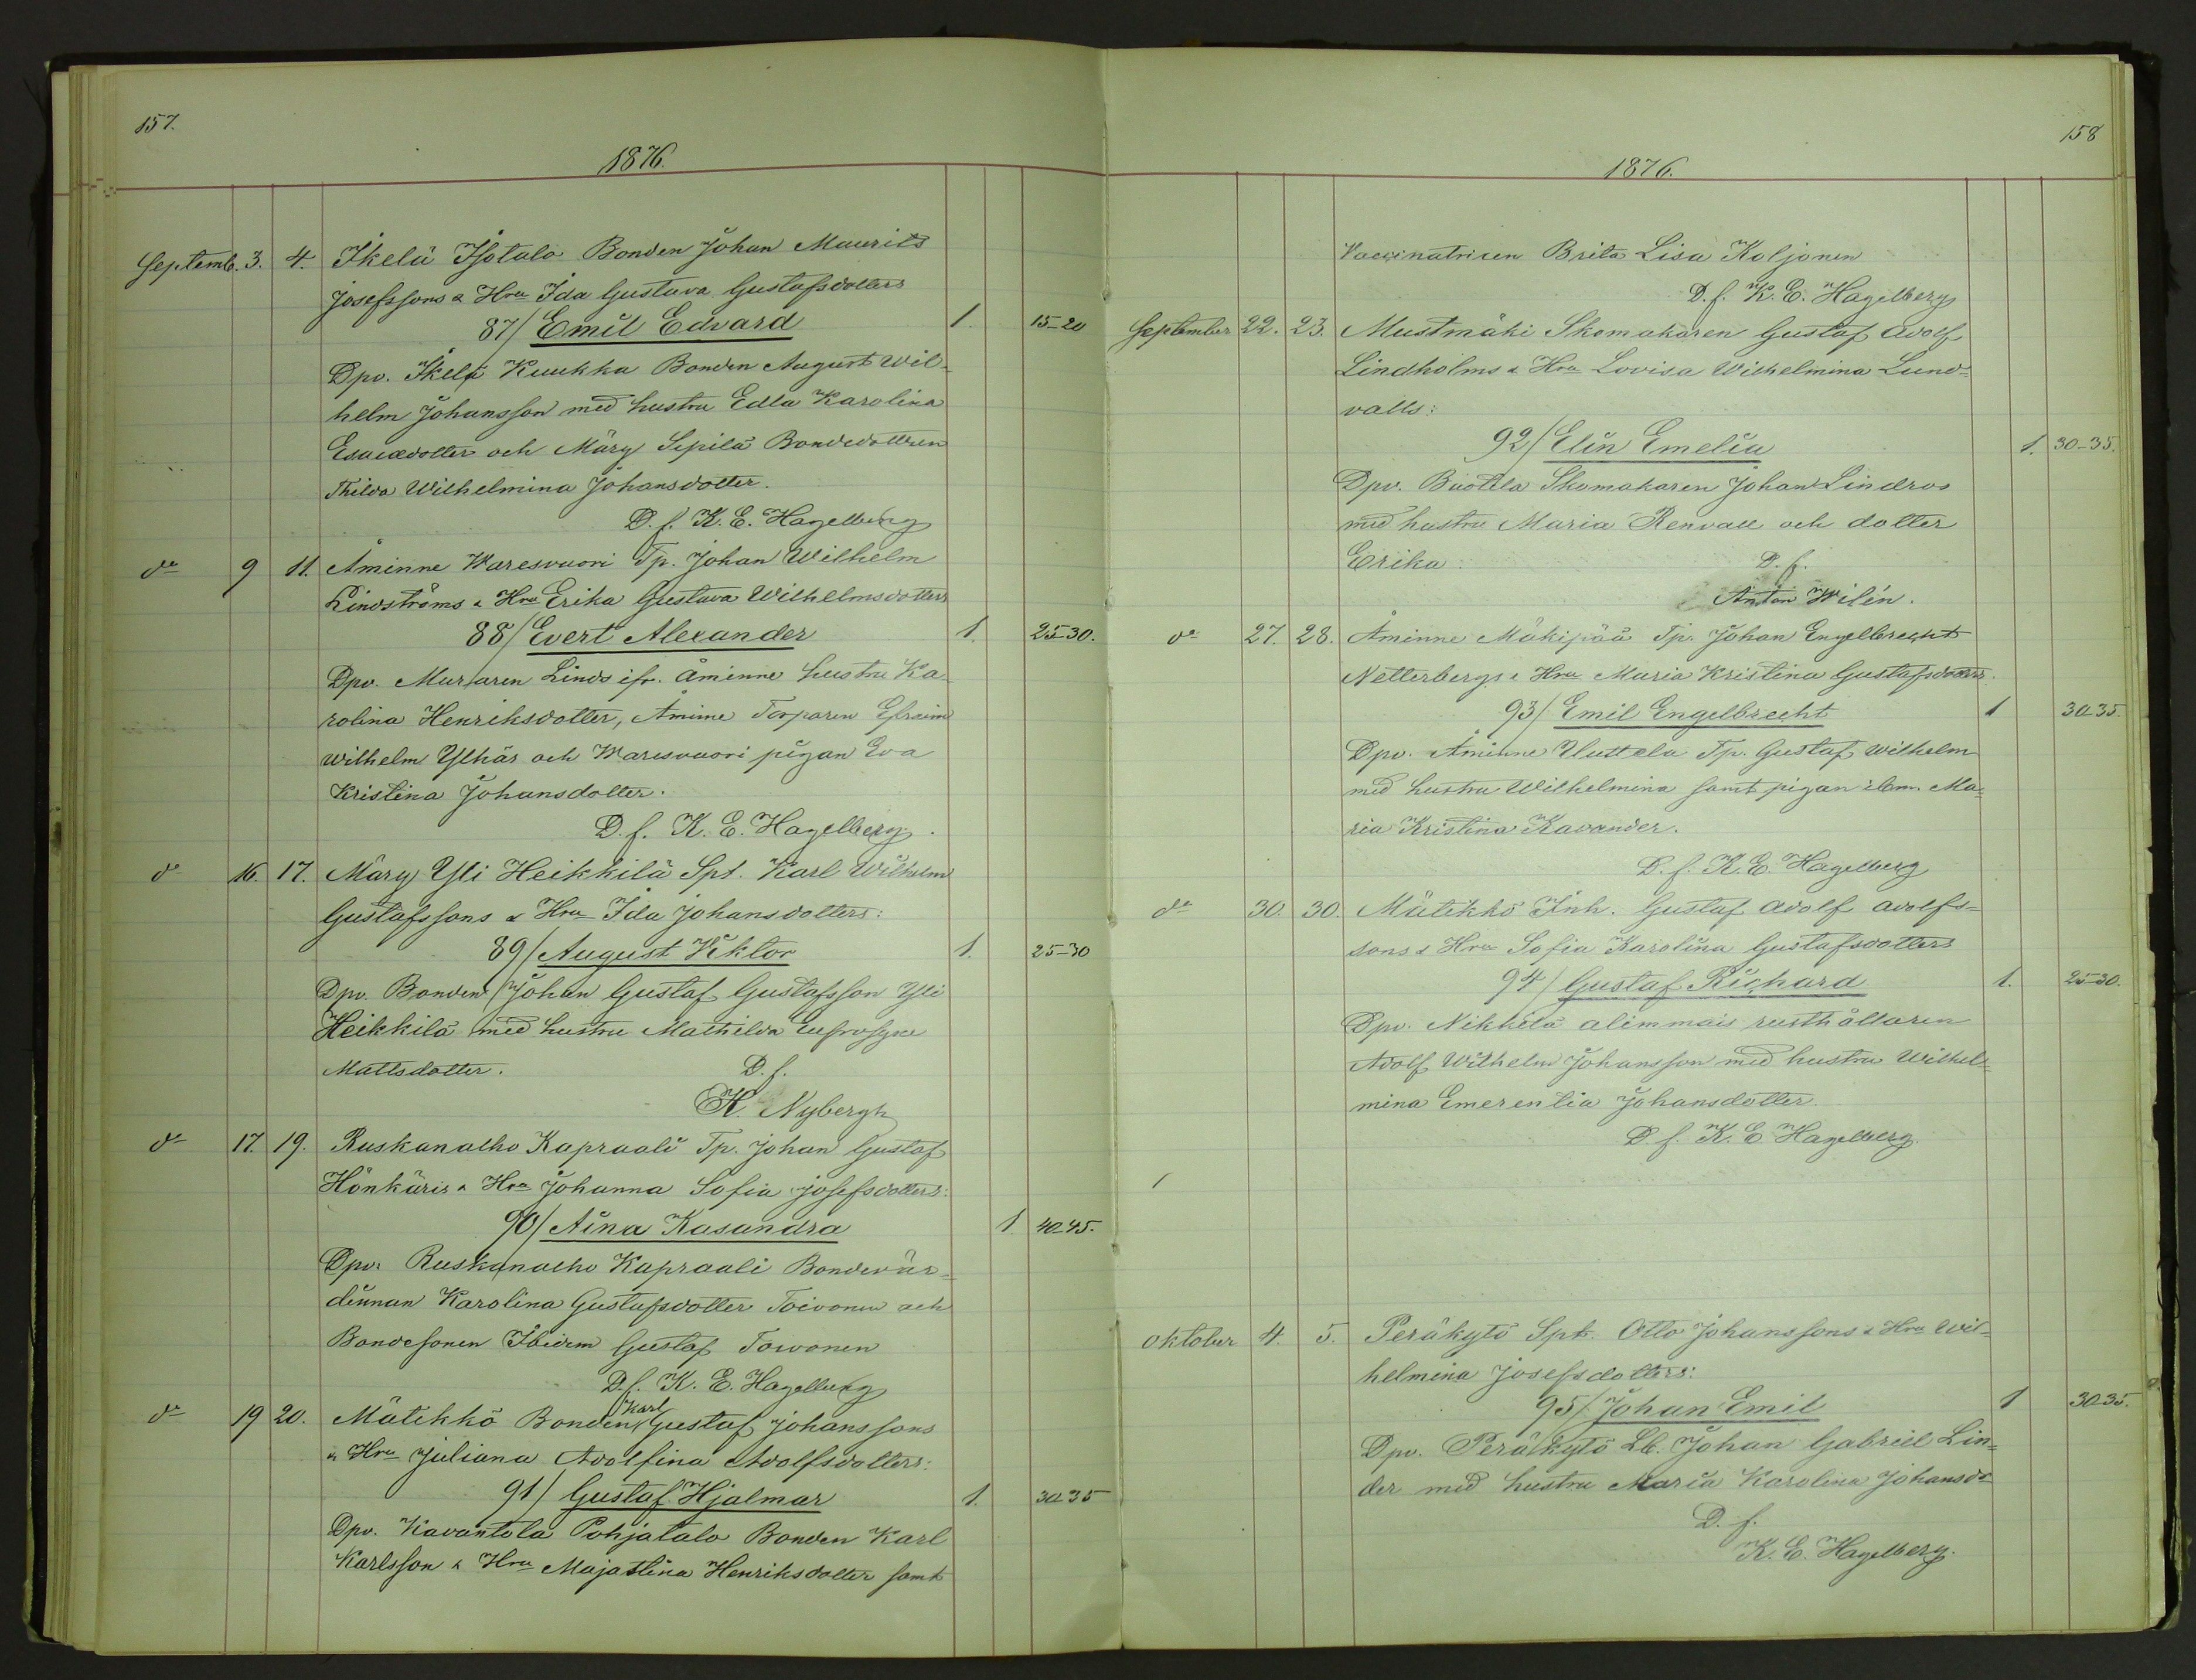 157.
1876.
Septemb. 3. 4. Ikelä Isotalo Bonden Johan Maurits
Josefssons & Hru Ida Gustava Gustafsdotters
87/ Emil Edvard 1. 15-20
Dpv. Ikelä Kuukka Bonden August Wil-
helm Johansson med hustru Edla Karolina
Esaiædotter och Märy Sepilä Bondedottren
Thilda Wilhelmina Johansdotter.
D. f. K. E. Hagelberg
do 9 11. Åminne Waresvuori Tp. Johan Wilhelm
Lindströms & Hru Erika Gustava Wilhelmsdotters
88/ Evert Alexander 1. 25-30.
Dpv. Muraren Linds ifr. Åminne hustru Ka-
rolina Henriksdotter, Åminne Torparen Efraim
Wilhelm Ylhäs och Waresvuori pigan Eva
Kristina Johansdotter.
D. f. K. E. Hagelberg.
do 16. 17. Märy Yli Heikkilä Spt. Karl Wilhelm
Gustafssons & Hru Ida Johansdotters:
89/ August Viktor 1. 25-30
Dpv. Bonden Johan Gustaf Gustafsson Yli
Heikkilä med hustru Mathilda Eufrosyne
Mattsdotter. D. f.
K. Nybergh
do 17. 19. Ruskanalho Kapraali Tp. Johan Gustaf
Hönkäris & Hru Johanna Sofia Josefsdotters:
90/ Aina Kasandra 1. 40-45.
Dpv. Ruskanalho Kapraali Bondevär-
dinnan Karolina Gustafsdotter Toivonen och
Bondesonen Ibidem Gustaf Toivonen
D. f. K. E. Hagelberg
do 19 20. Mätikkö Bonden Karl Gustaf Johanssons
& Hru Juliana Adolfina Adolfsdotters:
91/ Gustaf Hjalmar 1. 30-35
Dpv. Kavantola Pohjatalo Bonden Karl
Karlsson & Hru Majastina Henriksdotter samt
158
1876.
Vaccinatricen Brita Lisa Koljonen
D. f. K. E. Hagelberg
September 22. 23. Mustmäki Skomakaren Gustaf Adolf
Lindholms & Hru Lovisa Wilhelmina Lund-
valls:
92/ Elin Emelia 1. 30-35.
Dpv. Buotila Skomakaren Johan Lindros
med hustru Maria Renvall och dotter
Erika: D. f.
Anton Wilén.
do 27. 28. Åminne Mäkipää Tp. Johan Engelbrecht
Netterbergs & Hru Maria Kristina Gustafsdotters.
93/ Emil Engelbrecht 1 30-35.
Dpv. Åminne Uuttela Tp. Gustaf Wilhelm
med hustru Wilhelmina samt pigan ibm. Ma-
ria Kristina Kavander.
D. f. K. E. Hagelberg
do 30. 30. Mätikkö Inh. Gustaf Adolf Adolfs-
sons & Hru Sofia Karolina Gustafsdotters
94/ Gustaf Richard 1. 25-30.
Dpv. Nikkilä alimmais rusthållaren
Adolf Wilhelm Johansson med hustru Wilhel-
mina Emerentia Johansdotter.
D. f. K. E. Hagelberg.
Oktober 4. 5. Peräkytö Spt. Otto Johanssons & Hru Wil-
helmina Josefsdotters:
95/ Johan Emil 1 30-35.
Dpv. Peräkytö Lb. Johan Gabriel Lin-
der med hustru Maria Karolina Johansdr
D. f.
K. E. Hagelberg.